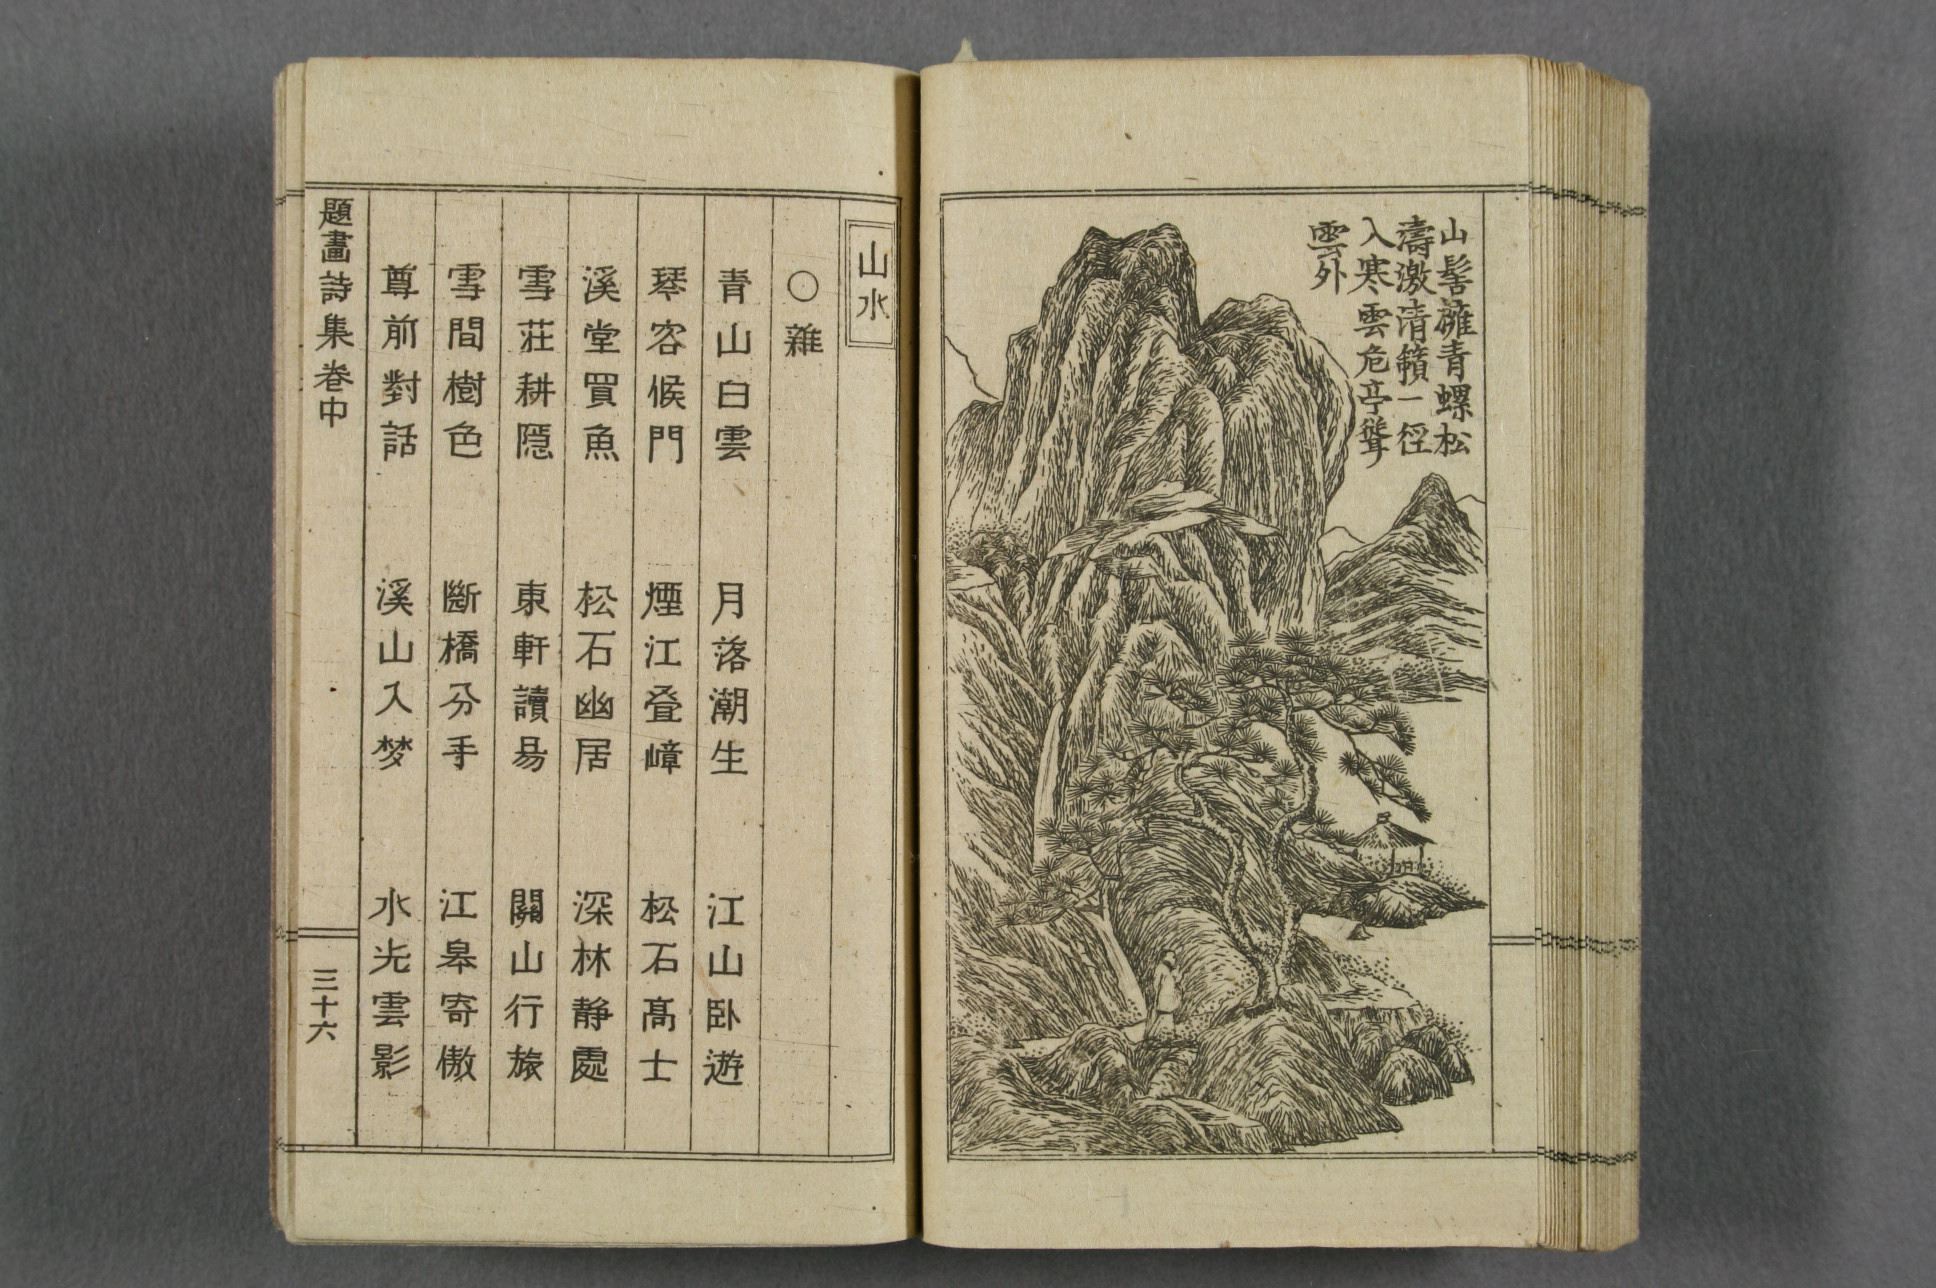 山髻擁青螺松
濤激清籟一徑
入寒雲危亭聳
雲外
山水
○雜
青山白雲　月落潮生　江山卧遊
琴客候門　煙江叠嶂　松石髙士
溪堂買魚　松石幽居　深林静處
雪莊耕隠　東軒讀易　關山行旅
雪間樹色　斷橋分手　江皋寄傲
尊前對話　溪山入梦　水光雲影
題畫詩集卷中
三十六